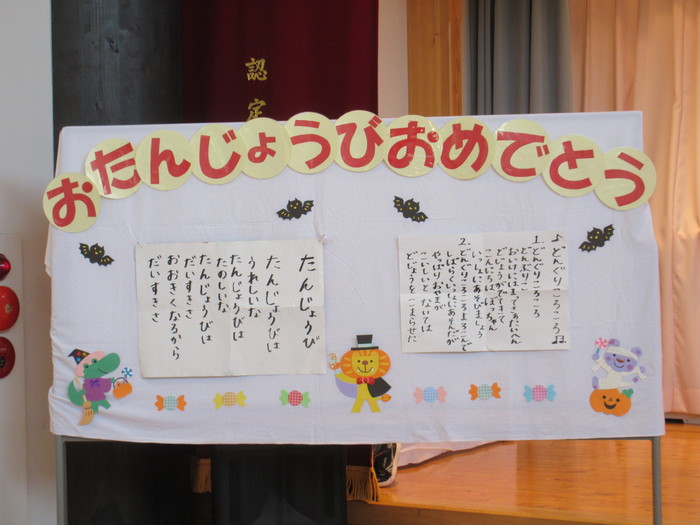 認定
おたんじょうびおめでとう
♫どんぐりころころ♫
1.どんぐりころころ
どんぶりこ
おいけにはまってさあたいへん
どじょうがでてきて
こんにちは ぼっちゃん
いっしょにあそびましょう
2.どんぐりころころよろこんで
しばらくいっしょにあそんだが
やっぱりおやまが
こいしいと ないては
どじょうを こまらせた
たんじょうび
たんじょうびは
うれしいな
たんじょうびは
たのしいな
たんじょうびは
だいすきさ
おおきくなるから
だいすきさ